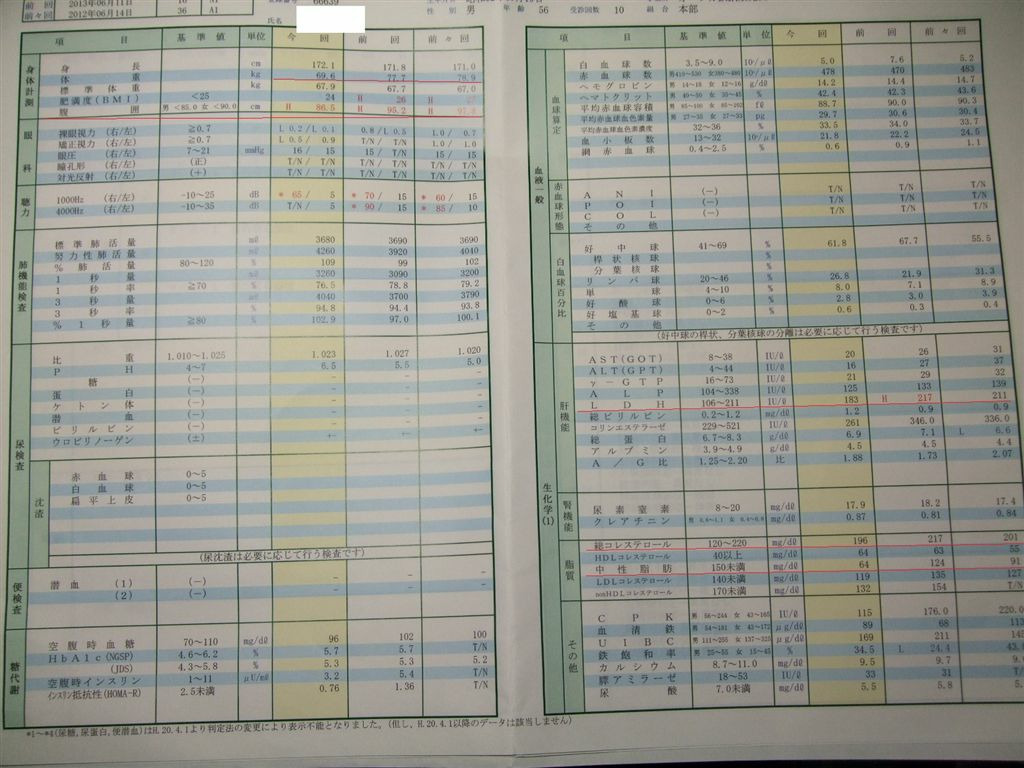 前 回 2013年06月11日
前々回 2012年06月14日 36 A1
66639
氏名
性 別 男 年 齢 56 受診回数 10 組 合 本部
項 目 基 準 値 単位 今 回 前 回 前 々 回
身体計測
身 長 cm 172.1 171.8 171.0
体 重 kg 69.6 77.7 78.9
標 準 体 重 kg 67.9 67.7 67.0
肥満度(BMI) <25 24 H 26 H
腹 囲 男 <85.0 女 <90.0 cm H 86.5 H 95.2 H
眼科
裸眼視力 (右/左) ≧0.7 L 0.2/L 0.1 0.8/L 0.5 1.0/ 0.7
矯正視力 (右/左) ≧0.7 L 0.5/ 0.9 T/N/ T/N 1.0/ 1.0
眼圧 (右/左) 7～21 mmHg 16 / 15 15 / T/N 15 / 15
瞳孔形 (右/左) (正) T/N/ T/N T/N/ T/N T/N/ T/N
対光反射 (右/左) (+) T/N/ T/N T/N/ T/N T/N/ T/N
聴力
1000Hz (右/左) -10～25 dB * 65 / 5 * 70 / 15 * 60 / 15
4000Hz (右/左) -10～35 dB T/N / 5 * 90 / 15 * 85 / 10
肺機能検査
標 準 肺 活 量 mℓ 3680 3690 3690
努 力 性 肺 活 量 mℓ 4260 3920 4040
% 肺 活 量 80～120 % 109 99 102
1 秒 量 mℓ 3260 3090 3200
1 秒 率 ≧70 % 76.5 78.8 79.2
3 秒 量 mℓ 4040 3700 3790
3 秒 率 % 94.8 94.4 93.8
% 1 秒 量 ≧80 % 102.9 97.0 100.1
尿検査
比 重 1.010～1.025 1.023 1.027 1.020
P H 4～7 6.5 5.5 5.0
糖 (−) − − −
蛋 白 (−) − − −
ケ ト ン 体 (−) − − −
潜 血 (−) − − −
ビ リ ル ビ ン (−) − − −
ウロビリノーゲン (±) +- +- +-
沈渣
赤 血 球 0～5
白 血 球 0～5
扁 平 上 皮 0～5
(尿沈渣は必要に応じて行う検査です)
便検査
潜 血 (1) (−) − − −
(2) (−) − − −
糖代謝
空 腹 時 血 糖 70～110 mg/dℓ 96 102 100
HbA1c(NGSP) 4.6～6.2 % 5.7 5.7 T/N
(JDS) 4.3～5.8 % 5.3 5.3 5.2
空腹時インスリン 1～11 μU/mℓ 3.2 5.4 T/N
インスリン抵抗性(HOMA-R) 2.5未満 0.76 1.36 T/N
*1～*4(尿糖,尿蛋白,便潜血)はH.20.4.1より判定法の変更により表示不能となりました。(但し、H.20.4.1以降のデータは該当しません)
項 目 基 準 値 単 位 今 回 前 回 前 々 回
血液一般
血球算定
白 血 球 数 3.5～9.0 5.0 7.6 5.2
赤 血 球 数 男410～530 女380～480 478 470 483
ヘ モ グ ロ ビ ン 男 14～18 女 12～16 g/dℓ 14.2 14.4 14.7
ヘマトクリット 男 40～50 女 35～45 % 42.4 42.3 43.6
平均赤血球容積 fℓ 88.7 90.0 90.3
平均赤血球血色素量 男 27～35 女 27～33 pg 29.7 30.6 30.4
平均赤血球血色素濃度 32～36 % 33.5 34.0 33.7
血 小 板 数 13～32 21.8 22.2 24.5
網 赤 血 球 0.4～2.5 % 0.6 0.9 1.1
赤血球形態
A N I (−) T/N T/N T/N
P O I (−) T/N T/N T/N
C O L (−) T/N T/N T/N
そ の 他
白血球百分比
好 中 球 41～69 % 61.8 67.7 55.5
桿 状 核 球 %
分 葉 核 球 %
リ ン パ 球 20～46 % 26.8 21.9 31.3
単 球 4～10 % 8.0 7.1 8.9
好 酸 球 0～6 % 2.8 3.0 3.9
好 塩 基 球 0～2 % 0.6 0.3 0.4
そ の 他
(好中球の桿状、分葉核球の分離は必要に応じて行う検査です)
生化学(1)
肝機能
AST(GOT) 8～38 IU/ℓ 20 26 31
ALT(GPT) 4～44 IU/ℓ 16 27 37
γ－GTP 16～73 IU/ℓ 21 29 32
A L P 104～338 IU/ℓ 125 133 139
L D H 106～211 IU/ℓ 183 H 217 211
総ビリルビン 0.2～1.2 mg/dℓ 1.2 0.9 0.9
コリンエステラーゼ 229～521 IU/ℓ 261 346.0 336.0
総 蛋 白 6.7～8.3 g/dℓ 6.9 7.1 L 6.6
ア ル ブ ミ ン 3.9～4.9 g/dℓ 4.5 4.5 4.4
A / G 比 1.25～2.20 比 1.88 1.73 2.07
腎機能
尿 素 窒 素 8～20 mg/dℓ 17.9 18.2 17.4
クレアチニン mg/dℓ 0.87 0.81 0.84
脂質
総コレステロール 120～220 mg/dℓ 196 217 201
HDLコレステロール 40以上 mg/dℓ 64 63 55
中 性 脂 肪 150未満 mg/dℓ 64 124 91
LDLコレステロール 140未満 mg/dℓ 119 135 127
nonHDLコレステロール 170未満 mg/dℓ 132 154 T/N
その他
C P K 男 56～244 女 43～165 IU/ℓ 115 176.0 220.0
血 清 鉄 男 54～181 女 43～172 μg/dℓ 89 68 113
U I B C 男 111～255 女 137～325 μg/dℓ 169 211
鉄 飽 和 率 男 25～55 女 15～45 % 34.5 L 24.4
カ ル シ ウ ム 8.7～11.0 mg/dℓ 9.5 9.7
膵アミラーゼ 18～53 IU/ℓ 33 31
尿 酸 7.0未満 mg/dℓ 5.5 5.8